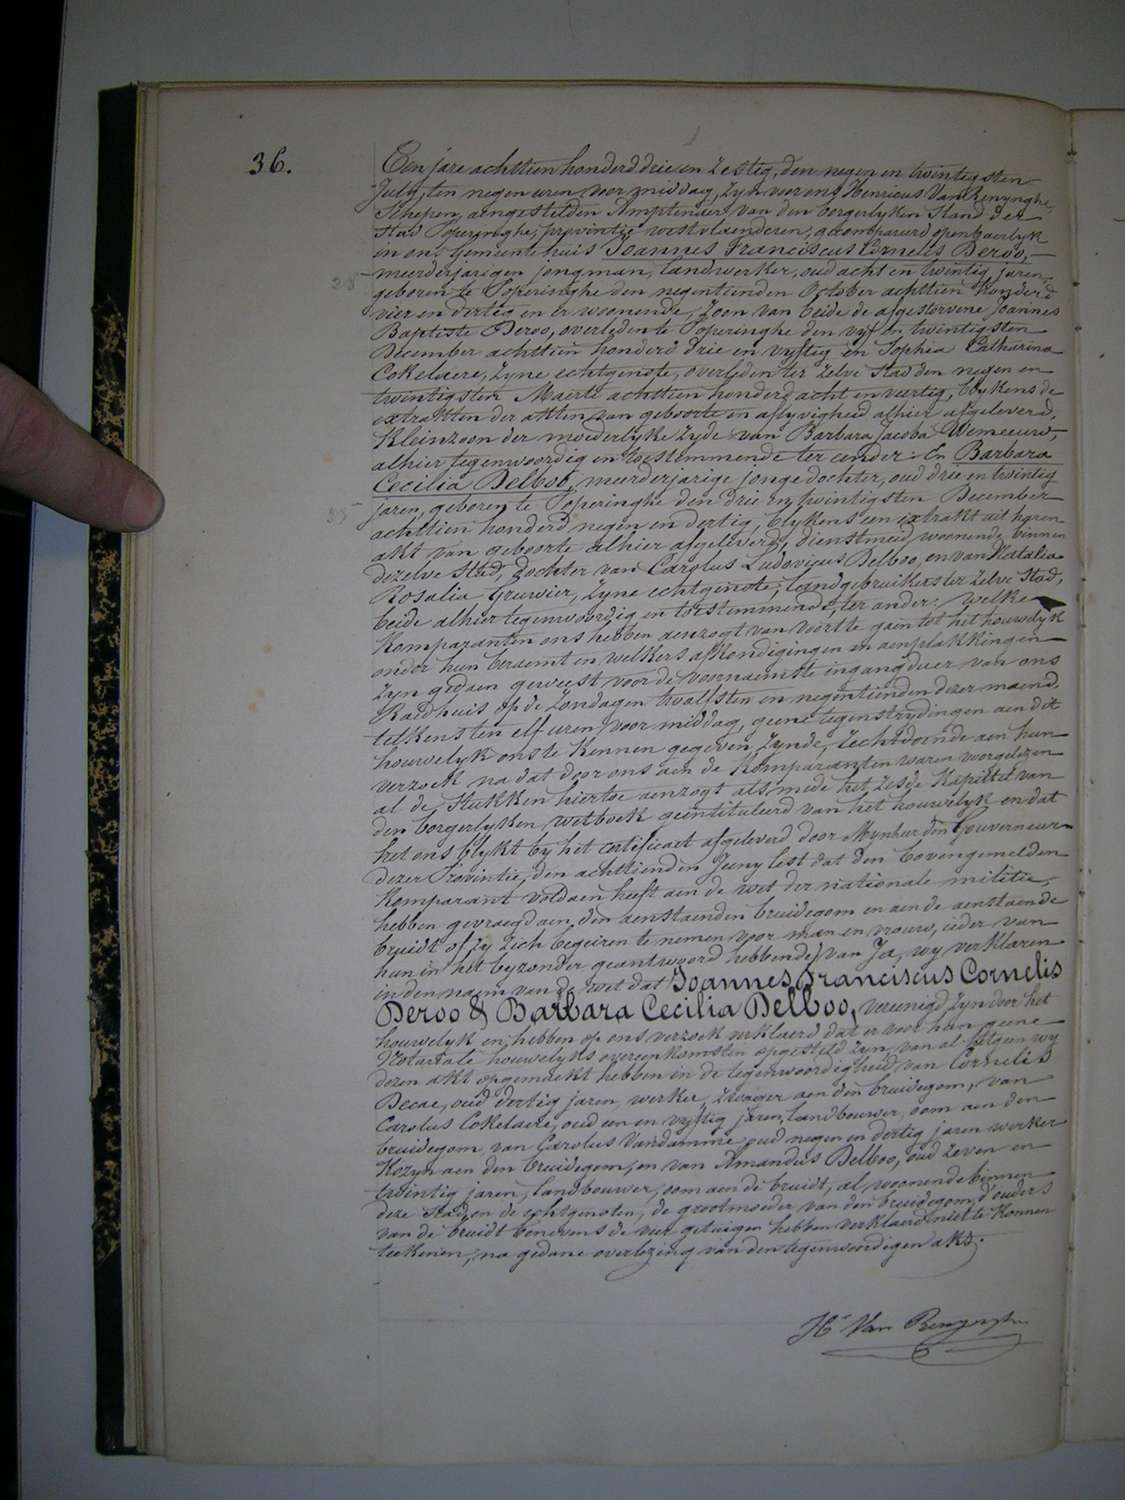 36.
Een jare achttien honderd drie en zestig, den negen en twintigsten
July, ten negen uren voor middag, zyn voor ons Henricus Van Renynghe,
Schepen, aengestelden Amptenaer van den borgerlyken Stand der
Stad Poperinghe, provintie westvlaenderen, gecompareerd openbaerlyk
in ons Gemeentehuis Joannes Franciscus Cornelis Deroo,
meerderjarigen jongman, landwerker, oud acht en twintig jaren,
geboren te Poperinghe den negentienden October achttien honderd
vier en dertig en er woonende, zoon van beide de afgestorvene Joannes
Baptiste Deroo, overleden te Poperinghe den vyf en twintigsten
December achttien honderd drie en vyftig en Sophia Catharina
Cokelaere, zyne echtgenote, overleden ter zelve stad den negen en
twintigsten Maerte achttien honderd acht en veertig, blykens de
extrakten der akten van geboorte en aflyvigheid alhier afgeleverd,
Kleinzoon der moederlyke zyde van Barbara Jacoba Wemeeuw,
alhier tegenwoordig en toestemmende ter eender: En Barbara
Cecilia Delboo, meerderjarige jonge dochter, oud drie en twintig
jaren, geboren te Poperinghe den drie en twintigsten December
achttien honderd negen en dertig, blykens een extrakt uit haren
akt van geboorte alhier afgeleverd, dienstmeid, woonende binnen
dezelve stad, dochter van Carolus Ludovicus Delboo, en van Natalia
Rosalia Gruwier, zyne echtgenote, landgebruikers ter zelve Stad,
beide alhier tegenwoordig en toestemmende, ter ander: welke
Komparanten ons hebben aenzogt van voort te gaen tot het houwelyk
onder hun beraemt en welkers afkondigingen en aenplakkingen
zyn gedaen geweest voor de voornaemste ingangdeur van ons
Raedhuis op de zondagen twalfsten en negentienden dezer maend,
telkens ten elf uren voor middag, geene tegenstrydingen aen dit
houwelyk ons te kennen gegeven zynde, recht doende aen hun
verzoek, na dat door ons aen de Komparanten waren voorgelezen
al de stukken hiertoe aenzogt als mede het zesde Kapittel van
den borgerlyken wetboek geintituleerd van het houwelyk en dat
het ons blykt by het certificaet afgeleverd door Mynheer den Gouverneur
dezer Provintie, den achttienden Juny lest dat den bovengemelden
Komparant voldaen heeft aen de wet der nationale militie,
hebben gevraegd aen den aenstaenden bruidegom en aen de aenstaende
bruidt of zy zich begeiren te nemen voor man en vrouw, ieder van
hun in het byzonder geantwoord hebbende van Ja, wy verklaren
in den naem van de wet dat Joannes Franciscus Cornelis
Deroo & Barbara Cecilia Delboo, vereenigd zyn door het
houwelyk en hebben op ons verzoek verklaerd dat er voor hun geene
Notariale houwelyks overeenkomsten opgesteld zyn, van al 't geen wy
dezen akt opgemaekt hebben in de tegenwoordigheid van Cornelis
Decae, oud dertig jaren, werker, zwager aen den bruidegom, van
Carolus Cokelaere, oud een en vyftig jaren, landbouwer, oom aen den
bruidegom, van Carolus Vandamme, oud negen en dertig jaren werker
Kozyn aen den bruidegom, en van Amandus Delboo, oud zeven en
twintig jaren, landbouwer, oom aen de bruidt, al woonende binnen
deze stad, en de echtgenoten, de grootmoeder van den bruidegom, d'ouders
van de bruidt benevens de vier getuigen hebben verklaerd niet te konnen
teekenen, na gedane overlezing van den tegenwoordigen akt.
Hs Van Renynghe